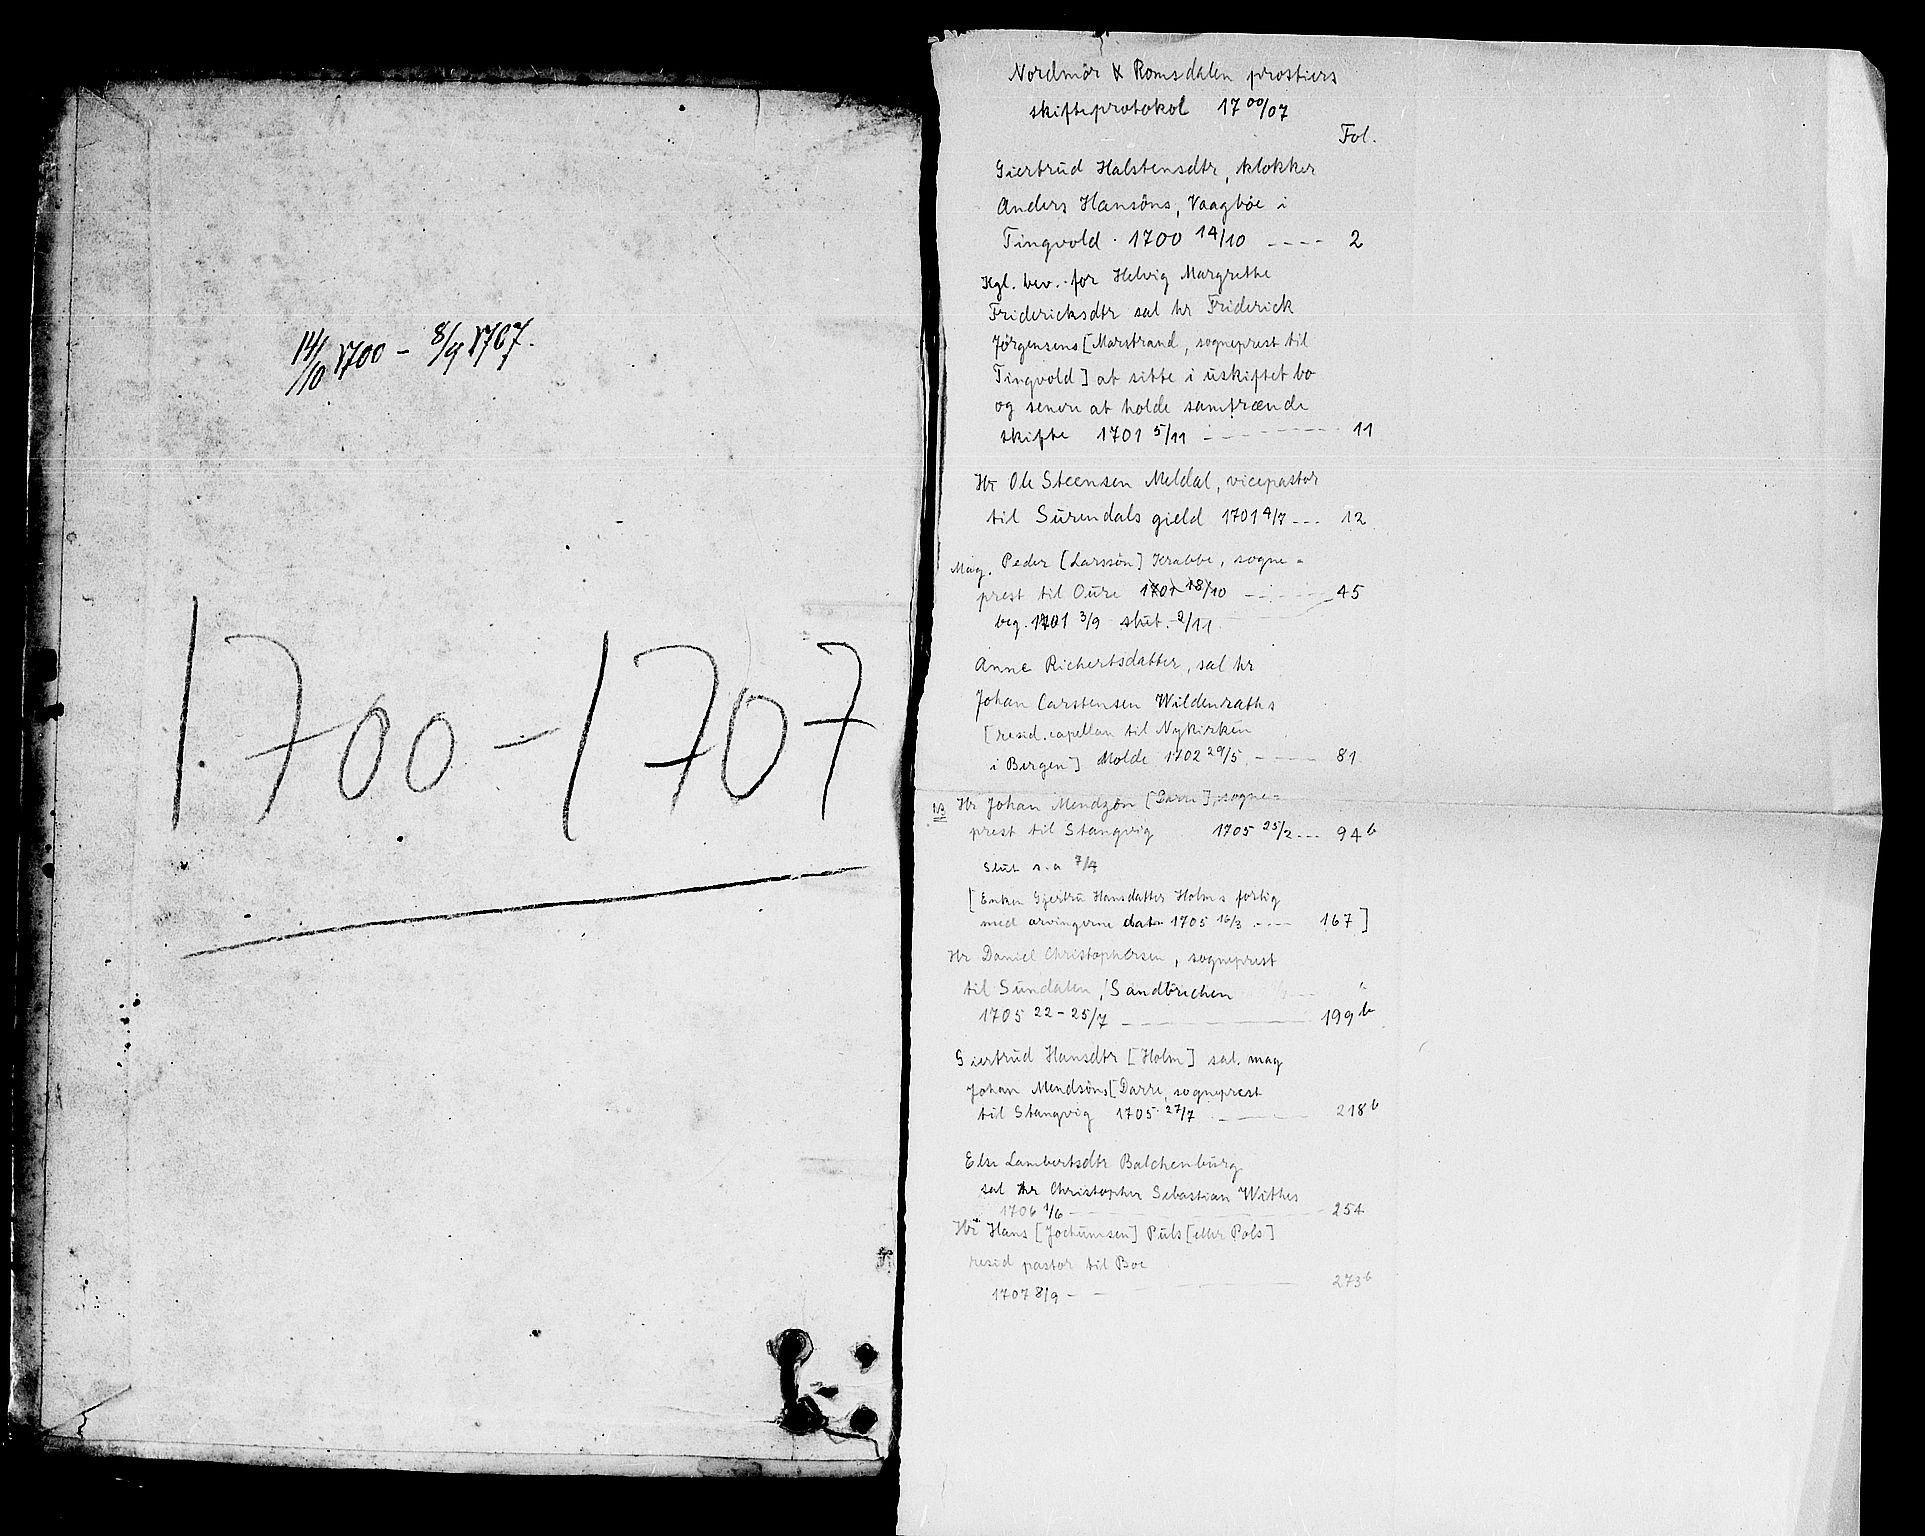 14/10 1700 - 8/9 1707.
1700-1707
Nordmör & Romsdalen prostiers
skifteprotokol 1700/07
Fol.
Giertrud Halstensdtr, klokker
Anders Hansöns, Vaagböe i
Tingvold. 1700 14/10 ---- 2
Kgl. bev. for Helvig Margrethe
Fridericksdtr sal hr Friderick
Jörgensens [Marstrand, sogneprest til
Tingvold] at sitte i uskiftet bo
og senere at holde samfrænde
skifte 1701 5/11 ---- 11
Hr Ole Steensen Meldal, vicepastor
til Surendals gield 1701 4/7 --- 12
Mag. Peder [Larssön] Krabbe, sogne-
prest til Oure 1701 18/10 ---- 45
beg. 1701 3/9 slut. 2/11
Anne Richertsdatter, sal hr
Johan Carstensen Wildenraths
[resid. capellan til Nykirken
i Bergen] Molde 1702 29/5 ---- 81
Hr Johan Mendzön [Darre], sogne-
prest til Stangvig 1705 25/2 --- 94b
Slut s.a 7/4
[Enken Gjertru Hansdatter Holms forlig
med arvingerne dat 1705 16/3 ---- 167]
Hr Daniel Christophersen, sogneprest
til Sundalen, Sandbrichen
1705 22-25/7 ---- 199b
Giertrud Hansdtr [Holm] sal. mag
Johan Mendsöns [Darre, sogneprest
til Stangvig 1705 27/7 ---- 218b
Else Lambertsdtr Balchenburg
sal hr Christopher Sebastian Withes
1706 1/6 ---- 254
Hr Hans [Jochumsen] Puls [eller Pols]
resid pastor til Boe
1707 8/9 ---- 273b